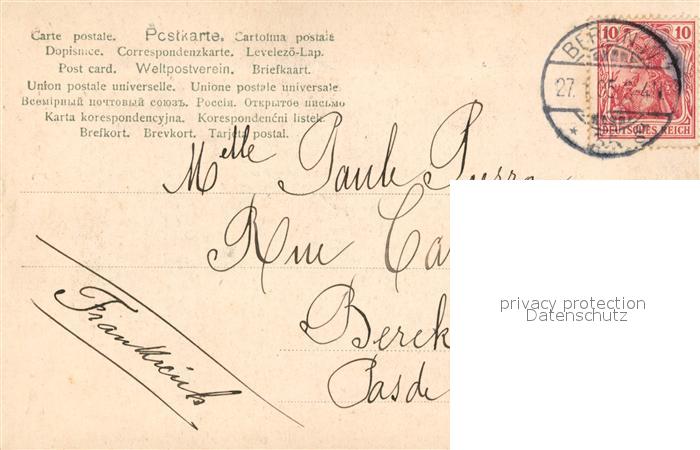 Carte postale. Postkarte. Cartolina postale
Dopisnice. Correspondenzkarte. Levelező-Lap.
Post card. Weltpostverein. Briefkaart.
Union postale universelle. Unione postale universale
Всемірный почтовый союзъ. Россія. Открытое письмо
Karta korespondencyjna. Korespondenční listek
Brefkort. Brevkort. Tarjeta postal.
10 10
DEUTSCHES REICH
BERLIN
27.
Melle Paule
Rue Ca
Berck
Pas de
Frankreich
privacy protection
Datenschutz